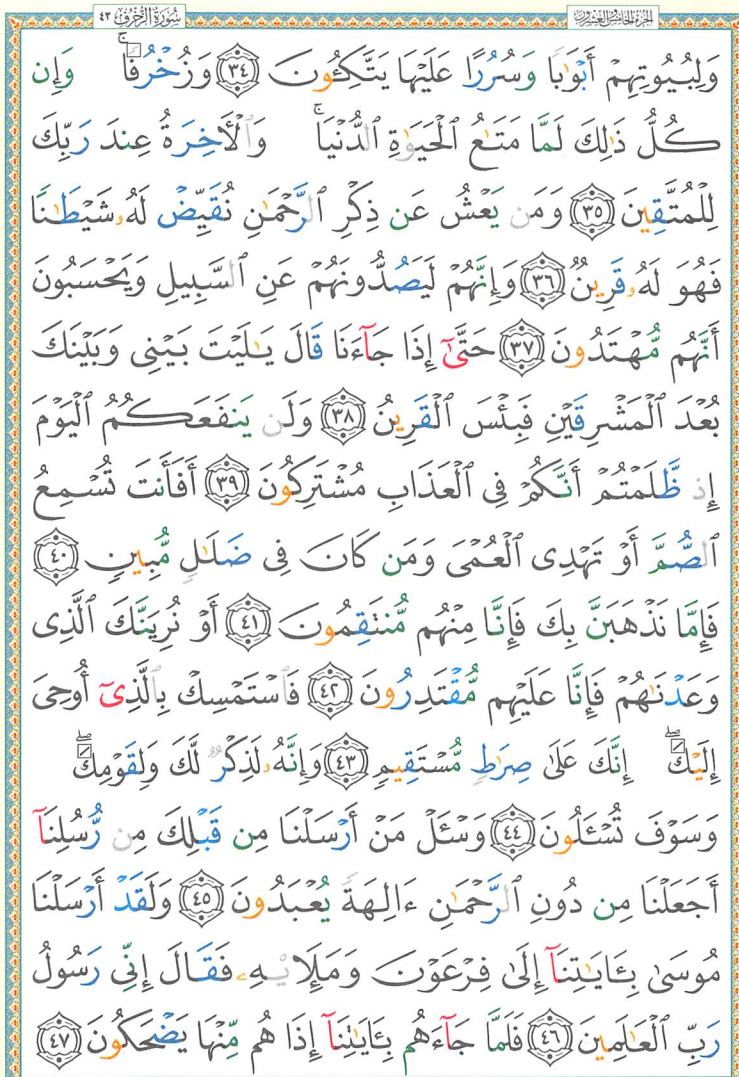 الجزء الخامس والعشرون سورة الزخرف ٤٣
وَلِبُيُوتِهِمْ أَبْوَٰبًا وَسُرُرًا عَلَيْهَا يَتَّكِـُٔونَ ٣٤ وَزُخْرُفًا ۚ وَإِن
كُلُّ ذَٰلِكَ لَمَّا مَتَـٰعُ ٱلْحَيَوٰةِ ٱلدُّنْيَا ۚ وَٱلْـَٔاخِرَةُ عِندَ رَبِّكَ
لِلْمُتَّقِينَ ٣٥ وَمَن يَعْشُ عَن ذِكْرِ ٱلرَّحْمَـٰنِ نُقَيِّضْ لَهُۥ شَيْطَـٰنًا
فَهُوَ لَهُۥ قَرِينٌ ٣٦ وَإِنَّهُمْ لَيَصُدُّونَهُمْ عَنِ ٱلسَّبِيلِ وَيَحْسَبُونَ
أَنَّهُم مُّهْتَدُونَ ٣٧ حَتَّىٰٓ إِذَا جَآءَنَا قَالَ يَـٰلَيْتَ بَيْنِى وَبَيْنَكَ
بُعْدَ ٱلْمَشْرِقَيْنِ فَبِئْسَ ٱلْقَرِينُ ٣٨ وَلَن يَنفَعَكُمُ ٱلْيَوْمَ
إِذ ظَّلَمْتُمْ أَنَّكُمْ فِى ٱلْعَذَابِ مُشْتَرِكُونَ ٣٩ أَفَأَنتَ تُسْمِعُ
ٱلصُّمَّ أَوْ تَهْدِى ٱلْعُمْىَ وَمَن كَانَ فِى ضَلَـٰلٍ مُّبِينٍ ٤٠
فَإِمَّا نَذْهَبَنَّ بِكَ فَإِنَّا مِنْهُم مُّنتَقِمُونَ ٤١ أَوْ نُرِيَنَّكَ ٱلَّذِى
وَعَدْنَـٰهُمْ فَإِنَّا عَلَيْهِم مُّقْتَدِرُونَ ٤٢ فَٱسْتَمْسِكْ بِٱلَّذِىٓ أُوحِىَ
إِلَيْكَ ۖ إِنَّكَ عَلَىٰ صِرَٰطٍ مُّسْتَقِيمٍ ٤٣ وَإِنَّهُۥ لَذِكْرٌ لَّكَ وَلِقَوْمِكَ ۖ
وَسَوْفَ تُسْـَٔلُونَ ٤٤ وَسْـَٔلْ مَنْ أَرْسَلْنَا مِن قَبْلِكَ مِن رُّسُلِنَآ
أَجَعَلْنَا مِن دُونِ ٱلرَّحْمَـٰنِ ءَالِهَةً يُعْبَدُونَ ٤٥ وَلَقَدْ أَرْسَلْنَا
مُوسَىٰ بِـَٔايَـٰتِنَآ إِلَىٰ فِرْعَوْنَ وَمَلَإِي۟هِۦ فَقَالَ إِنِّى رَسُولُ
رَبِّ ٱلْعَـٰلَمِينَ ٤٦ فَلَمَّا جَآءَهُم بِـَٔايَـٰتِنَآ إِذَا هُم مِّنْهَا يَضْحَكُونَ ٤٧